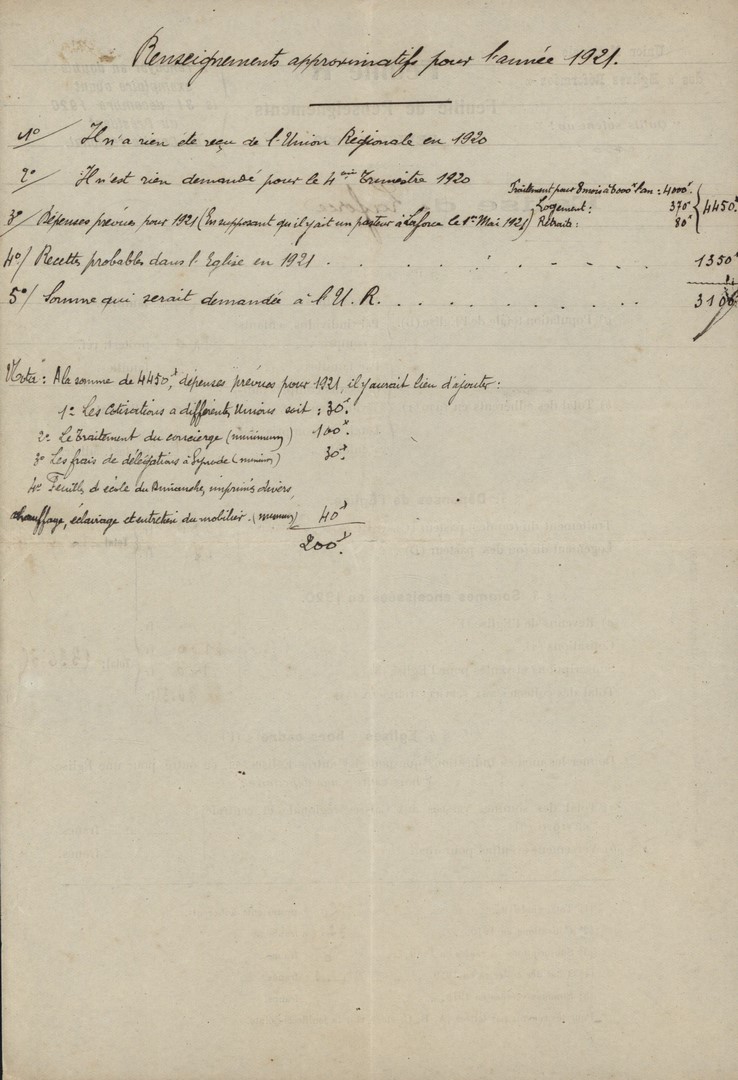 Renseignements approximatifs pour l'année 1921.
1°/ Il n'a rien été reçu de l'Union Régionale en 1920
2°/ Il n'est rien demandé pour le 4ème Trimestre 1920
Traitement pour 8 mois à 6000f l'an : 4000f.
Logement : 370f
Retraits : 80f
4450f
3°/ Dépenses prévues pour 1921 (En supposant qu'il y ait un pasteur à Laforce le 1er Mai 1921)
4°/ Recettes probables dans l'Eglise en 1921 . . . . . . . . 1350f
5°/ Somme qui serait demandée à l'U.R. . . . . . . . . 310
Nota : A la somme de 4450f, dépenses prévues pour 1921, il y aurait lieu d'ajouter :
1° Les Cotisations à différents Unions soit : 30f.
2° Le Traitement du concierge (minimum) 100f.
3° Les frais de délégations à Synode (minim) 30f.
4° Feuill. d'école du Dimanche, imprimés divers,
chauffage, éclairage et entretien du mobilier. (minimum) 40f
200f.